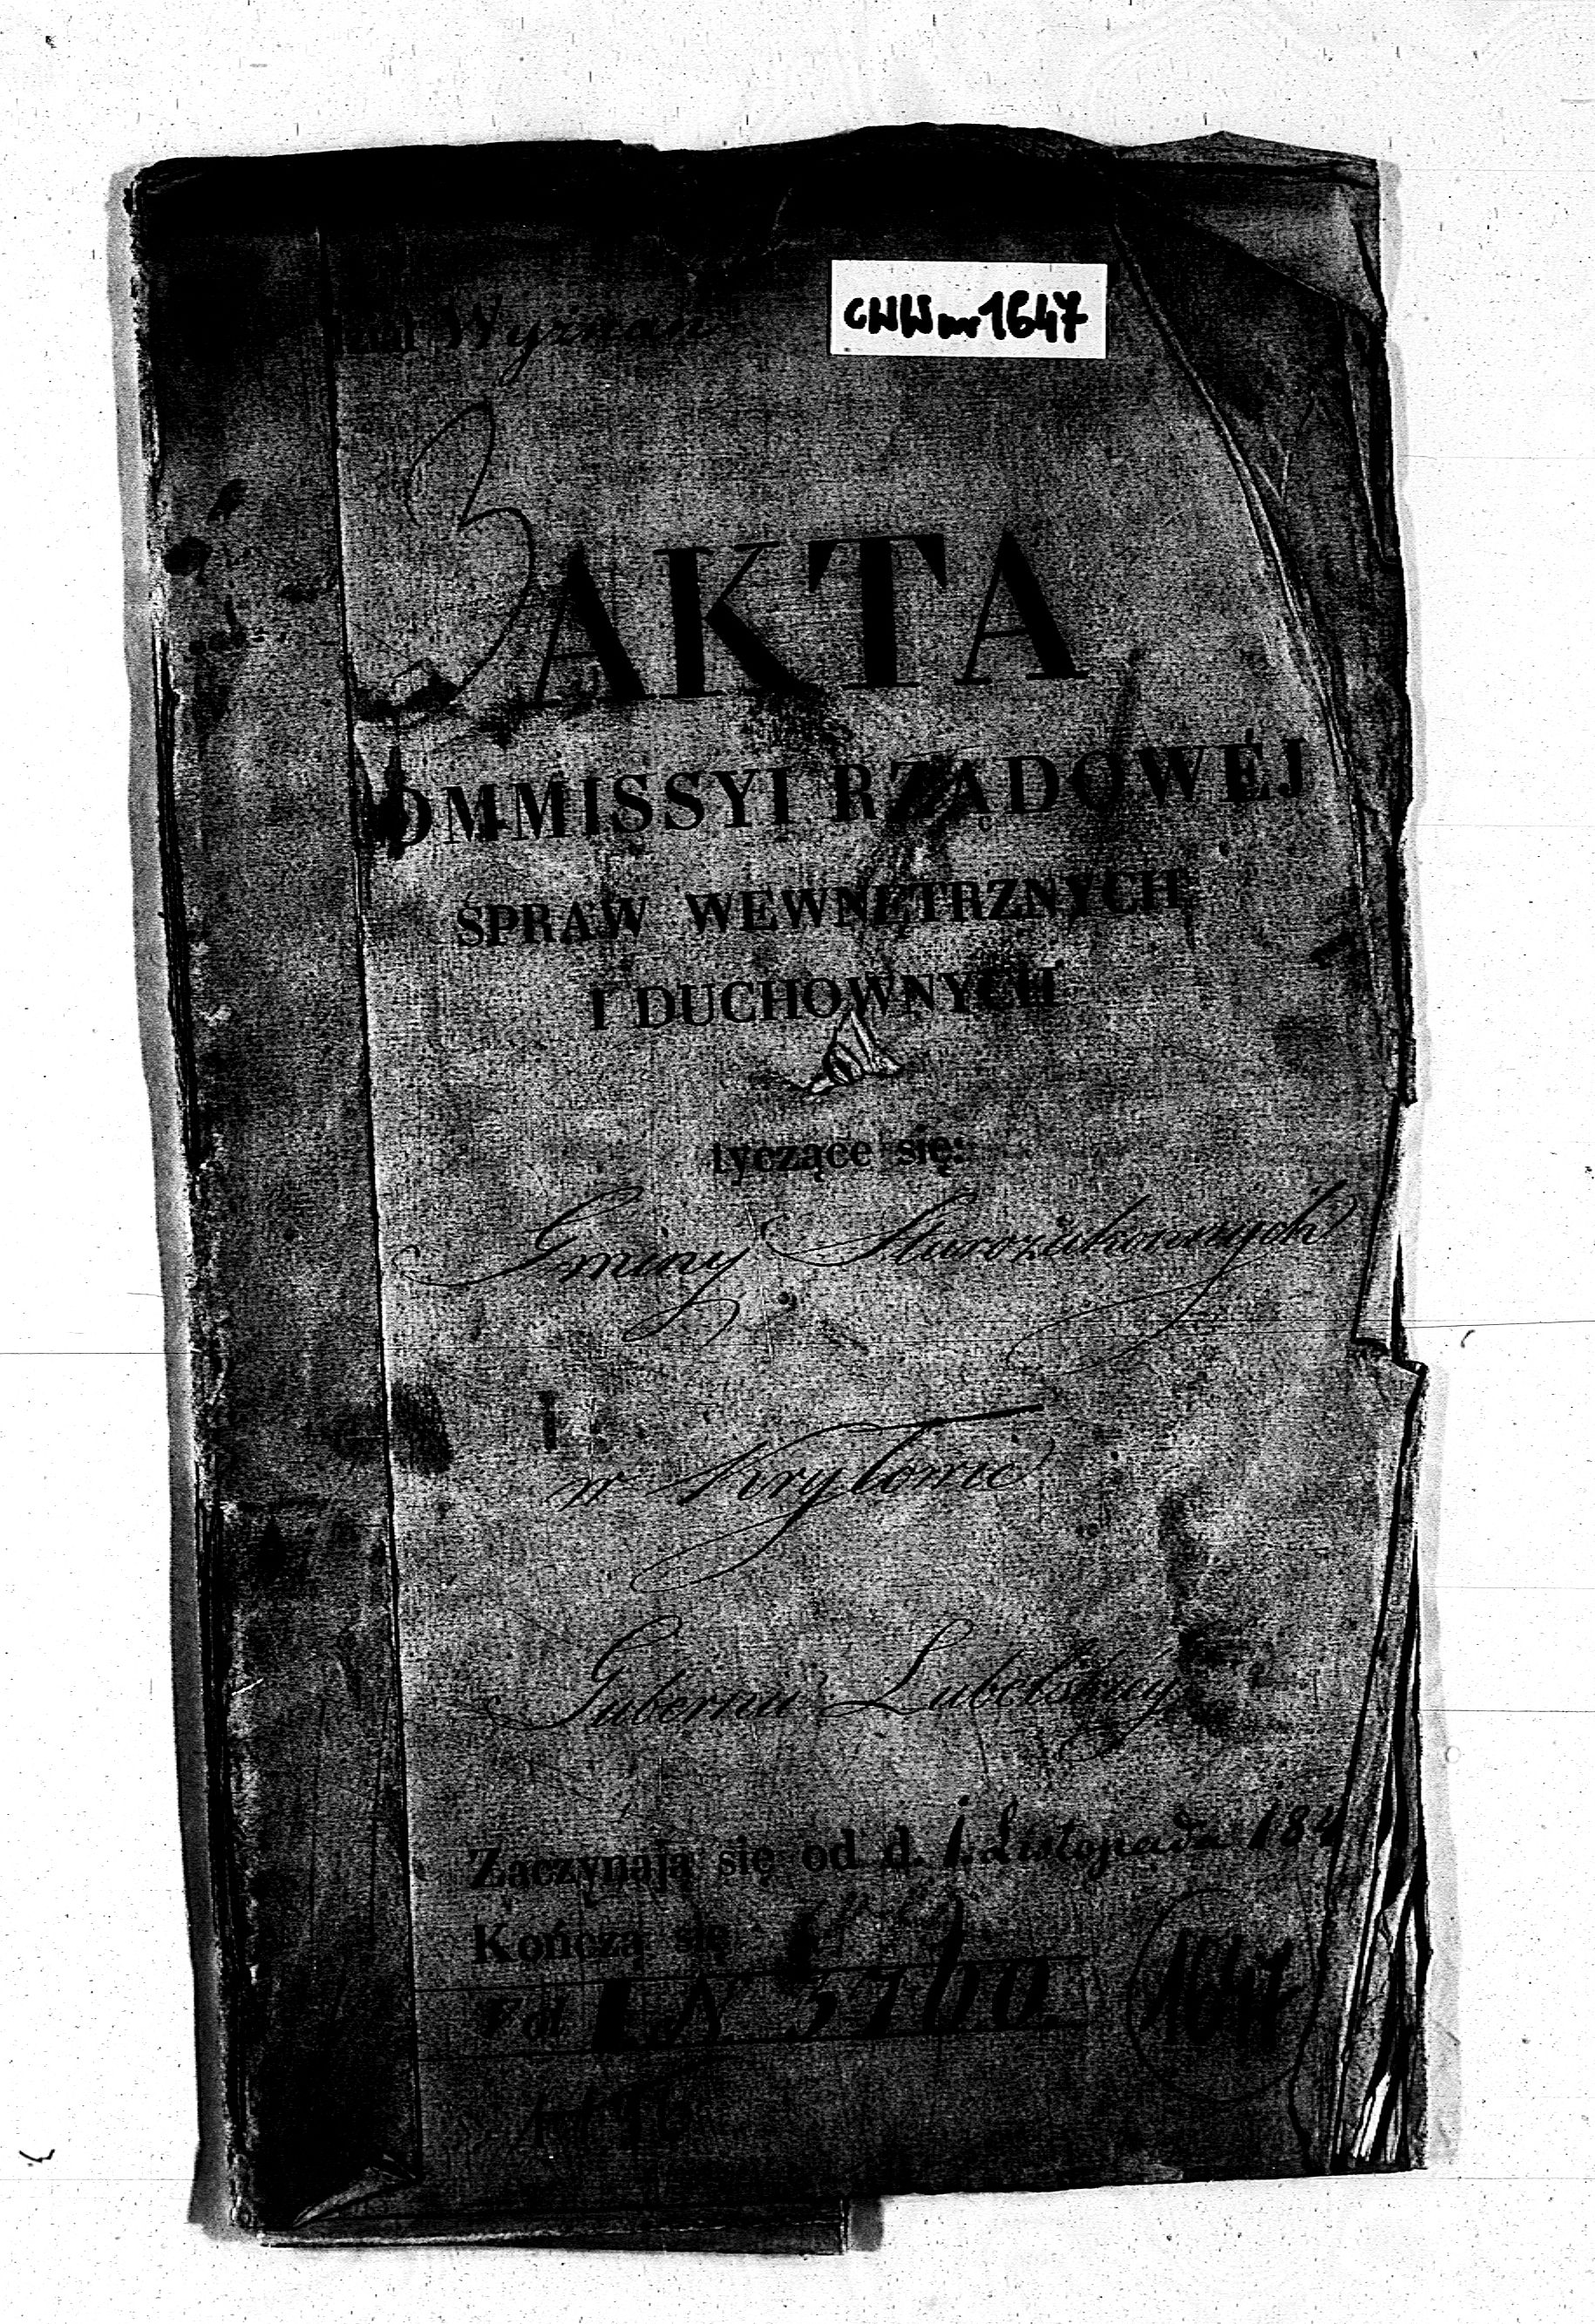 CWW nr 1647
Wyznań
AKTA
OMMISSYI RZĄDOWÉJ
SPRAW WEWNĘTRZNYCH
I DUCHOWNYCH
tyczące się:
Gminy Starozakonnych
w Kryłowie
Gubernii Lubelskiey
Zaczynają się od d. 1. Listopada 184
Kończą się
Vol. 1. N. 5700.
1647